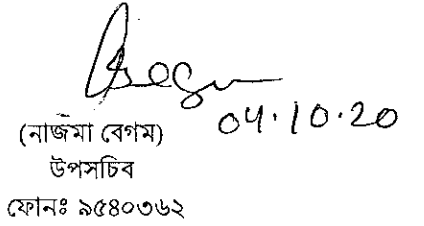 04.10.20
(নাজমা বেগম)
উপসচিব
ফোনঃ ৯৫৪০৩৬২